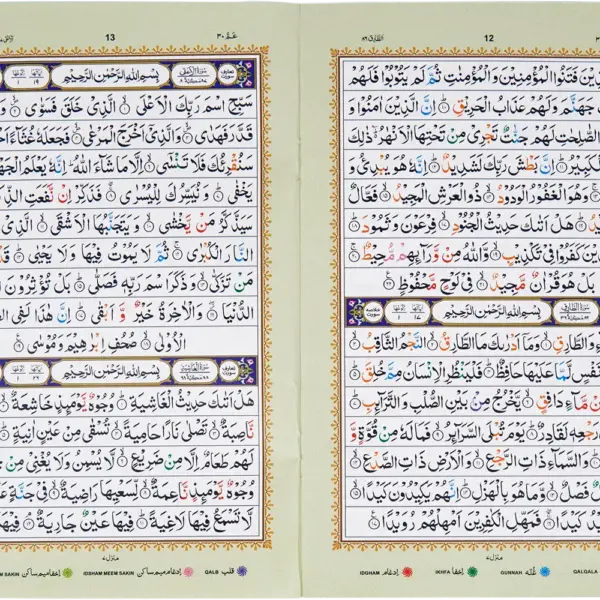 الطارق ٨٦
12
ذِيْنَ فَتَنُوا الْمُؤْمِنِيْنَ وَالْمُؤْمِنٰتِ ثُمَّ لَمْ يَتُوْبُوْا فَلَهُمْ
جَهَنَّمَ وَلَهُمْ عَذَابُ الْحَرِيْقِ اِنَّ الَّذِيْنَ اٰمَنُوْا وَ
الصّٰلِحٰتِ لَهُمْ جَنّٰتٌ تَجْرِيْ مِنْ تَحْتِهَا الْاَنْهٰرُ ذٰلِكَ
الْكَبِيْرُ اِنَّ بَطْشَ رَبِّكَ لَشَدِيْدٌ اِنَّهٗ هُوَ يُبْدِئُ وَ
وَهُوَ الْغَفُوْرُ الْوَدُوْدُ ذُو الْعَرْشِ الْمَجِيْدُ فَعَّالٌ
يْدُ هَلْ اَتٰىكَ حَدِيْثُ الْجُنُوْدِ فِرْعَوْنَ وَثَمُوْدَ
ذِيْنَ كَفَرُوْا فِيْ تَكْذِيْبٍ وَّاللّٰهُ مِنْ وَّرَآىِٕهِمْ مُّحِيْطٌ
بَلْ هُوَ قُرْاٰنٌ مَّجِيْدٌ فِيْ لَوْحٍ مَّحْفُوْظٍ
سُوْرَةُ الطَّارِقِ بِسْمِ اللّٰهِ الرَّحْمٰنِ الرَّحِيْمِ
ءِ وَالطَّارِقِ وَمَا اَدْرٰىكَ مَا الطَّارِقُ النَّجْمُ الثَّاقِبُ
نَفْسٍ لَّمَّا عَلَيْهَا حَافِظٌ فَلْيَنْظُرِ الْاِنْسَانُ مِمَّ خُلِقَ
مِنْ مَّآءٍ دَافِقٍ يَّخْرُجُ مِنْ بَيْنِ الصُّلْبِ وَالتَّرَآىِٕبِ
رَجْعِهٖ لَقَادِرٌ يَوْمَ تُبْلَى السَّرَآىِٕرُ فَمَا لَهٗ مِنْ قُوَّةٍ وَّ
وَالسَّمَآءِ ذَاتِ الرَّجْعِ وَالْاَرْضِ ذَاتِ الصَّدْعِ
لٌ فَصْلٌ وَّمَا هُوَ بِالْهَزْلِ اِنَّهُمْ يَكِيْدُوْنَ كَيْدًا
يْدُ كَيْدًا فَمَهِّلِ الْكٰفِرِيْنَ اَمْهِلْهُمْ رُوَيْدًا
منزل ٧
IDGHAM ادغام IKHFA اخفا GUNNAH غنّه QALQALA
عَمَّ ٣٠
13
سُوْرَةُ الْاَعْلٰى بِسْمِ اللّٰهِ الرَّحْمٰنِ الرَّحِيْمِ
سَبِّحِ اسْمَ رَبِّكَ الْاَعْلَى الَّذِيْ خَلَقَ فَسَوّٰى وَ
قَدَّرَ فَهَدٰى وَالَّذِيْ اَخْرَجَ الْمَرْعٰى فَجَعَلَهٗ غُثَآءً
سَنُقْرِئُكَ فَلَا تَنْسٰى اِلَّا مَا شَآءَ اللّٰهُ اِنَّهٗ يَعْلَمُ الْجَهْ
يَخْفٰى وَنُيَسِّرُكَ لِلْيُسْرٰى فَذَكِّرْ اِنْ نَّفَعَتِ الذِّ
سَيَذَّكَّرُ مَنْ يَّخْشٰى وَيَتَجَنَّبُهَا الْاَشْقَى الَّذِيْ
النَّارَ الْكُبْرٰى ثُمَّ لَا يَمُوْتُ فِيْهَا وَلَا يَحْيٰى قَدْ
مَنْ تَزَكّٰى وَذَكَرَ اسْمَ رَبِّهٖ فَصَلّٰى بَلْ تُؤْثِرُوْنَ
الدُّنْيَا وَالْاٰخِرَةُ خَيْرٌ وَّاَبْقٰى اِنَّ هٰذَا لَفِي
الْاُوْلٰى صُحُفِ اِبْرٰهِيْمَ وَمُوْسٰى
سُوْرَةُ الْغَاشِيَةِ بِسْمِ اللّٰهِ الرَّحْمٰنِ الرَّحِيْمِ
هَلْ اَتٰىكَ حَدِيْثُ الْغَاشِيَةِ وُجُوْهٌ يَّوْمَىِٕذٍ خَاشِعَةٌ
نَّاصِبَةٌ تَصْلٰى نَارًا حَامِيَةً تُسْقٰى مِنْ عَيْنٍ اٰنِيَةٍ
لَهُمْ طَعَامٌ اِلَّا مِنْ ضَرِيْعٍ لَّا يُسْمِنُ وَلَا يُغْنِيْ مِنْ
وُجُوْهٌ يَّوْمَىِٕذٍ نَّاعِمَةٌ لِّسَعْيِهَا رَاضِيَةٌ فِيْ جَنَّةٍ
لَّا تَسْمَعُ فِيْهَا لَاغِيَةً فِيْهَا عَيْنٌ جَارِيَةٌ فِيْهَا
منزل ٧
SAKIN اخفا میم ساکن IDGHAM MEEM SAKIN ادغام میم ساکن QALB قلب